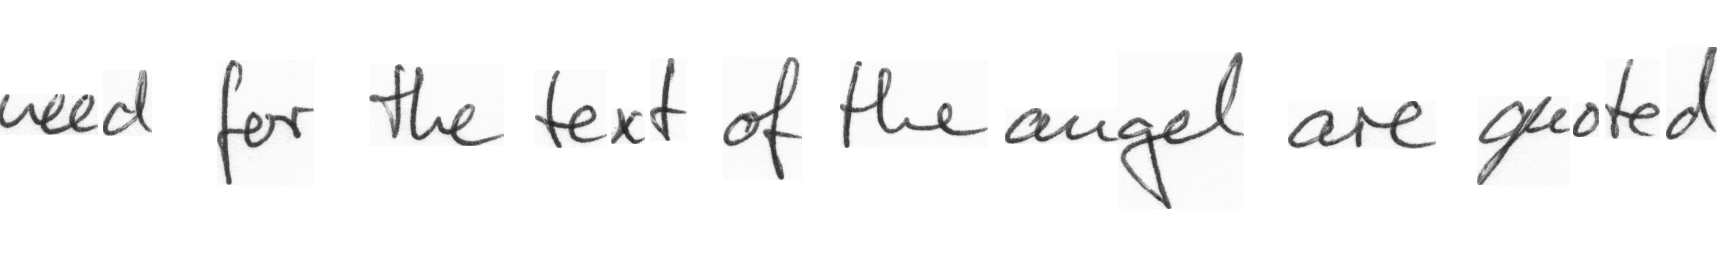 need for the text of the angel are quoted